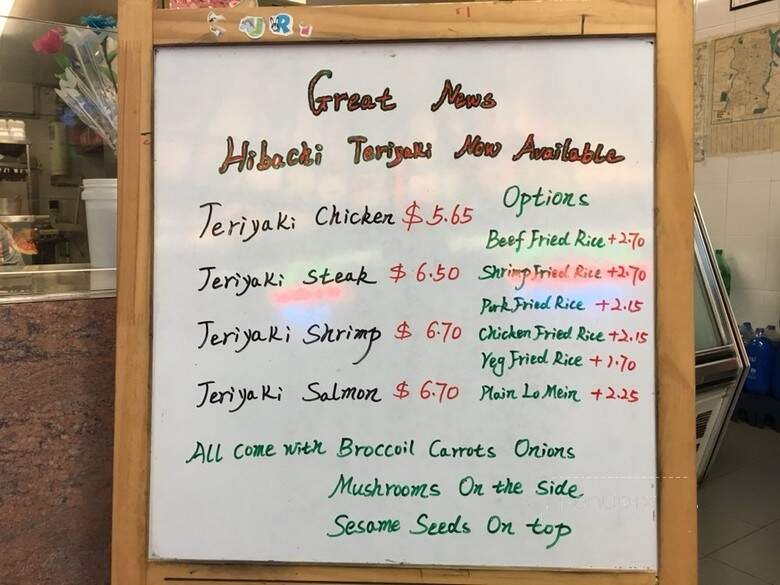 Great News
Hibachi Teriyaki Now Available
Teriyaki Chicken $5.65
Teriyaki Steak $6.50
Teriyaki Shrimp $6.70
Teriyaki Salmon $6.70
Options
Beef Fried Rice +2.70
Shrimp Fried Rice +2.70
Pork Fried Rice +2.15
Chicken Fried Rice +2.15
Veg Fried Rice +1.70
Plain Lo Mein +2.25
All come with Broccoil Carrots Onions
Mushrooms On the side
Sesame Seeds On top